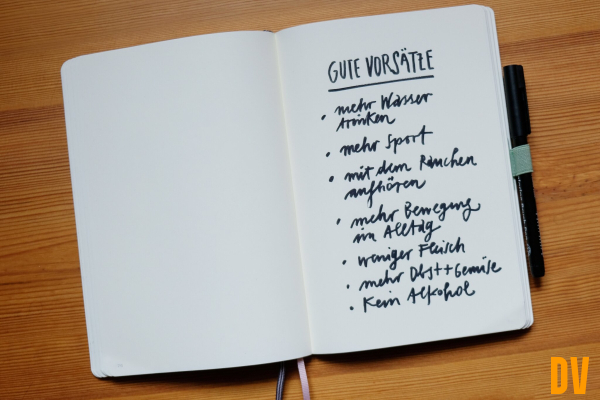 GUTE VORSÄTZE
• mehr Wasser
trinken
• mehr Sport
• mit dem Rauchen
aufhören
• mehr Bewegung
im Alltag
• weniger Fleisch
• mehr Obst+Gemüse
• Kein Alkohol
DV